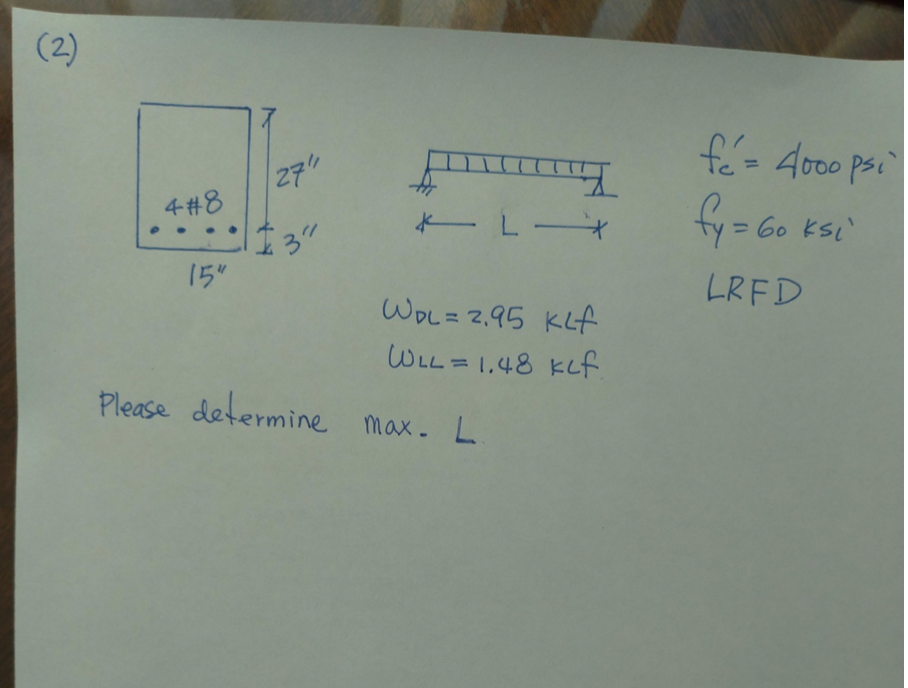 (2)
27"
4#8
3"
15"
L
fc' = 4000 psi
fy = 60 ksi
LRFD
WDL = 2.95 KLf
WLL = 1.48 KLf.
Please determine max. L